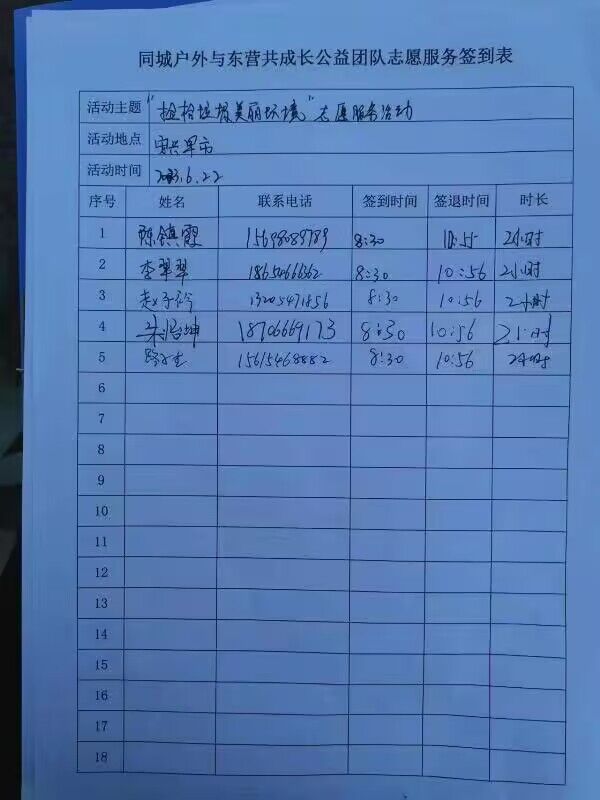 同城户外与东营共成长公益团队志愿服务签到表
活动主题 “捡拾垃圾美丽环境”志愿服务活动
活动地点
活动时间 2023.6.22
序号 姓名 联系电话 签到时间 签退时间 时长
1 陈镇霞 15698089789 8:30 10:55 2小时
2 李翠翠 18654666362 8:30 10:56 2小时
3 赵子矜 13205471856 8:30 10:56 2小时
4 18706669173 8:30 10:56 2小时
5 15615468882 8:30 10:56 2小时
6
7
8
9
10
11
12
13
14
15
16
17
18